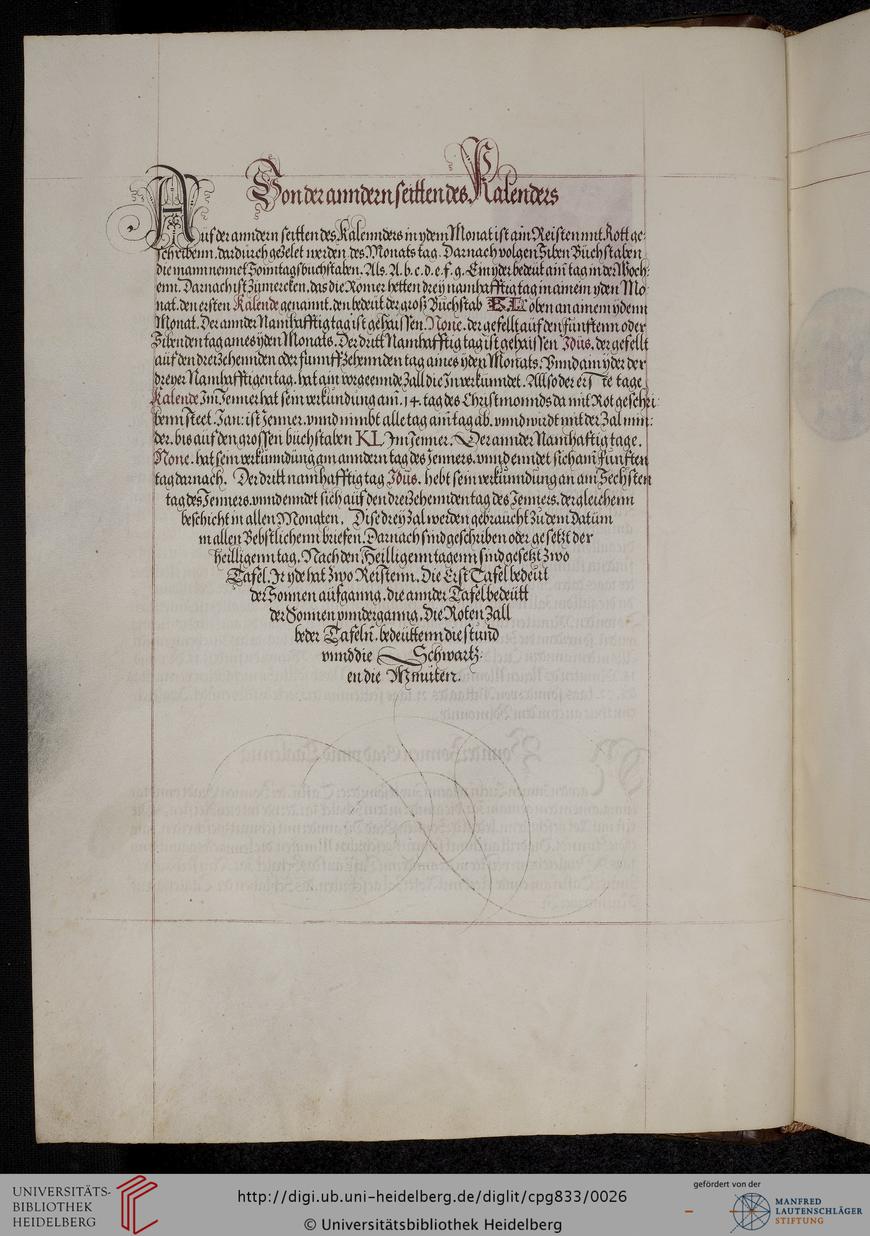 Von der anndern seitten des Kalenders
Auf der anndern seitten des Kalennders in ydem Monat ist ain Reisten mit Rott ge:
schribenn. dardurch gezelet werden des Monats tag. Darnach volgen Siben Buchstaben
die mann nennet Sonntagsbuchstaben. Als. A. b. c. d. e. f. g. Ein yder bedeut ain tag in der Woch:
enn. Darnach ist Zumercken, das die Römer hetten drey namhafftig tag in ainem yden Mo
nat. den ersten Kalende genannt. den bedeüt der groß Buchstab KL oben an ainem ydenn
Monat. Der annder Namhafftig tag ist gehaissen. None. der gefellt auf den funftenn oder
Sibenden tag aines yden Monats. Der dritt Namhafftig tag ist gehaissen Jdüs. der gefellt
auf den dreizehennden oder funnffzehennden tag aines yden Monats. Vnnd ain yder der
dreyer Namhafftigen tag. hat ain vorgeennde zall die Jn verkunndet. Allso der erste tage
Kalende Jm Jenner hat sein verkundung am. 14. tag des Christmonnds da mit Rot geschri:
benn steet. Jan: ist Jenner. vnnd nimbt alle tag ain tag ab. vnnd wirdt mit der Zal min:
der. bis auf den grossen büchstaben KL Jm Jenner. Der annder Namhaftig tage.
None. hat sein verkünndüng am anndern tag des Jenners. vnnd enndet sich am funften
tag darnach. Der dritt namhafftig tag Jdüs. hebt sein verkunndung an am Sechsten
tag des Jenners. vnnd enndet sich auf den dreizehennden tag des Jenners. der gleichenn
beschicht in allen Monaten. Dise drey Zal werden gebraucht Zu dem Datüm
in allen Bebstlichenn briefen. Darnach sind geschriben oder gesetzt der
heilligenn tag. Nach den Heilligenn tagenn sind gesetzt Zwo
Tafel. Jr yde hat Zwo Reistenn. Die Erst Tafel bedeut
der Sonnen aufganng. die annder Tafel bedeütt
der Sonnen vnnderganng. Die Roten Zall
beder Tafeln. bedeüttenn die stund
vnnd die Schwartz:
en die Mynuten.
UNIVERSITÄTS-
BIBLIOTHEK
HEIDELBERG
http://digi.ub.uni-heidelberg.de/diglit/cpg833/0026
© Universitätsbibliothek Heidelberg
gefördert von der
MANFRED
LAUTENSCHLÄGER
STIFTUNG